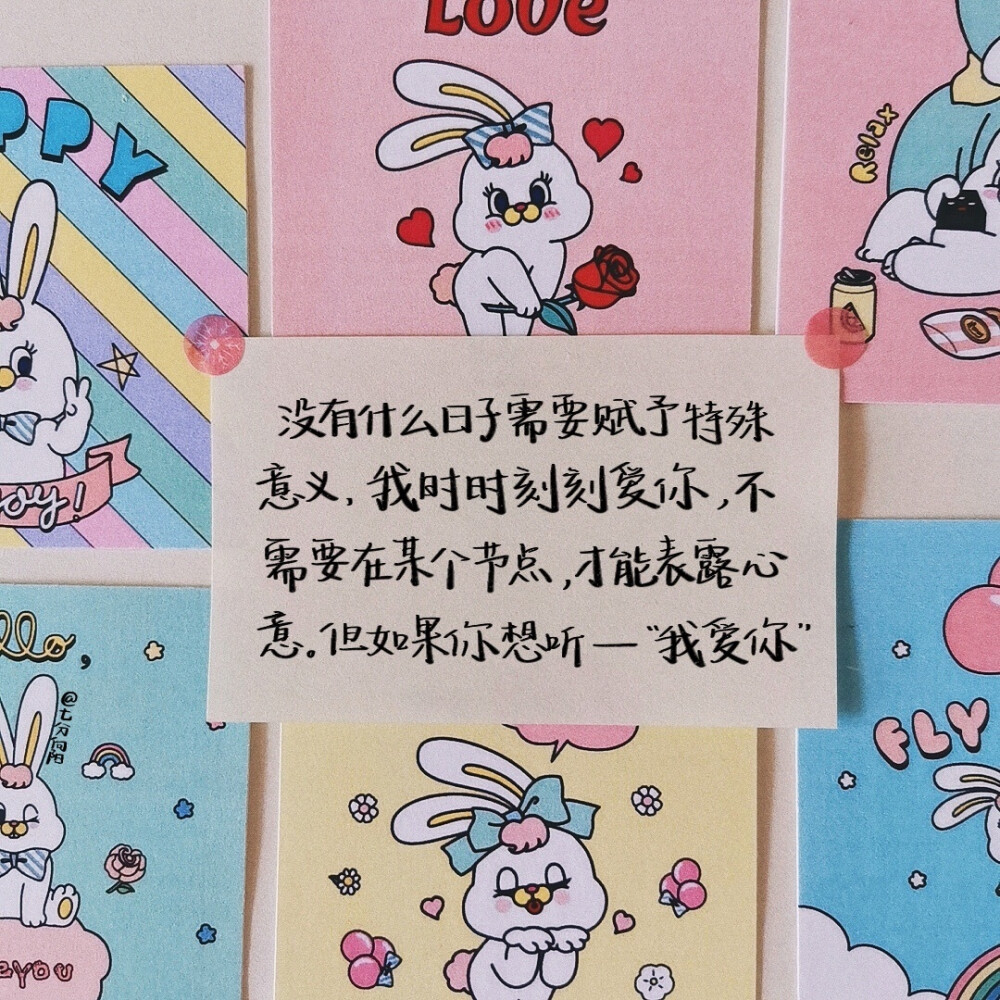 Love
PPY
Relax
没有什么日子需要赋予特殊
意义，我时时刻刻爱你，不
需要在某个节点，才能表露心
意。但如果你想听—“我爱你”
@七分向阳
FLY